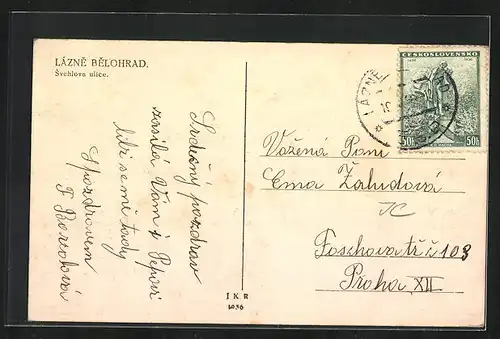 LÁZNĚ BĚLOHRAD.
Švehlova ulice.
Srdečný pozdrav
zasílá Vám i Pepovi
líbí se mě tady
S pozdravem
F
ČESKOSLOVENSKO
1436 1936
50h 50h
LÁZNĚ
Vážená Paní
Ema Žahudová
Foschova tř. č 108
Praha, XII
J K R
1036